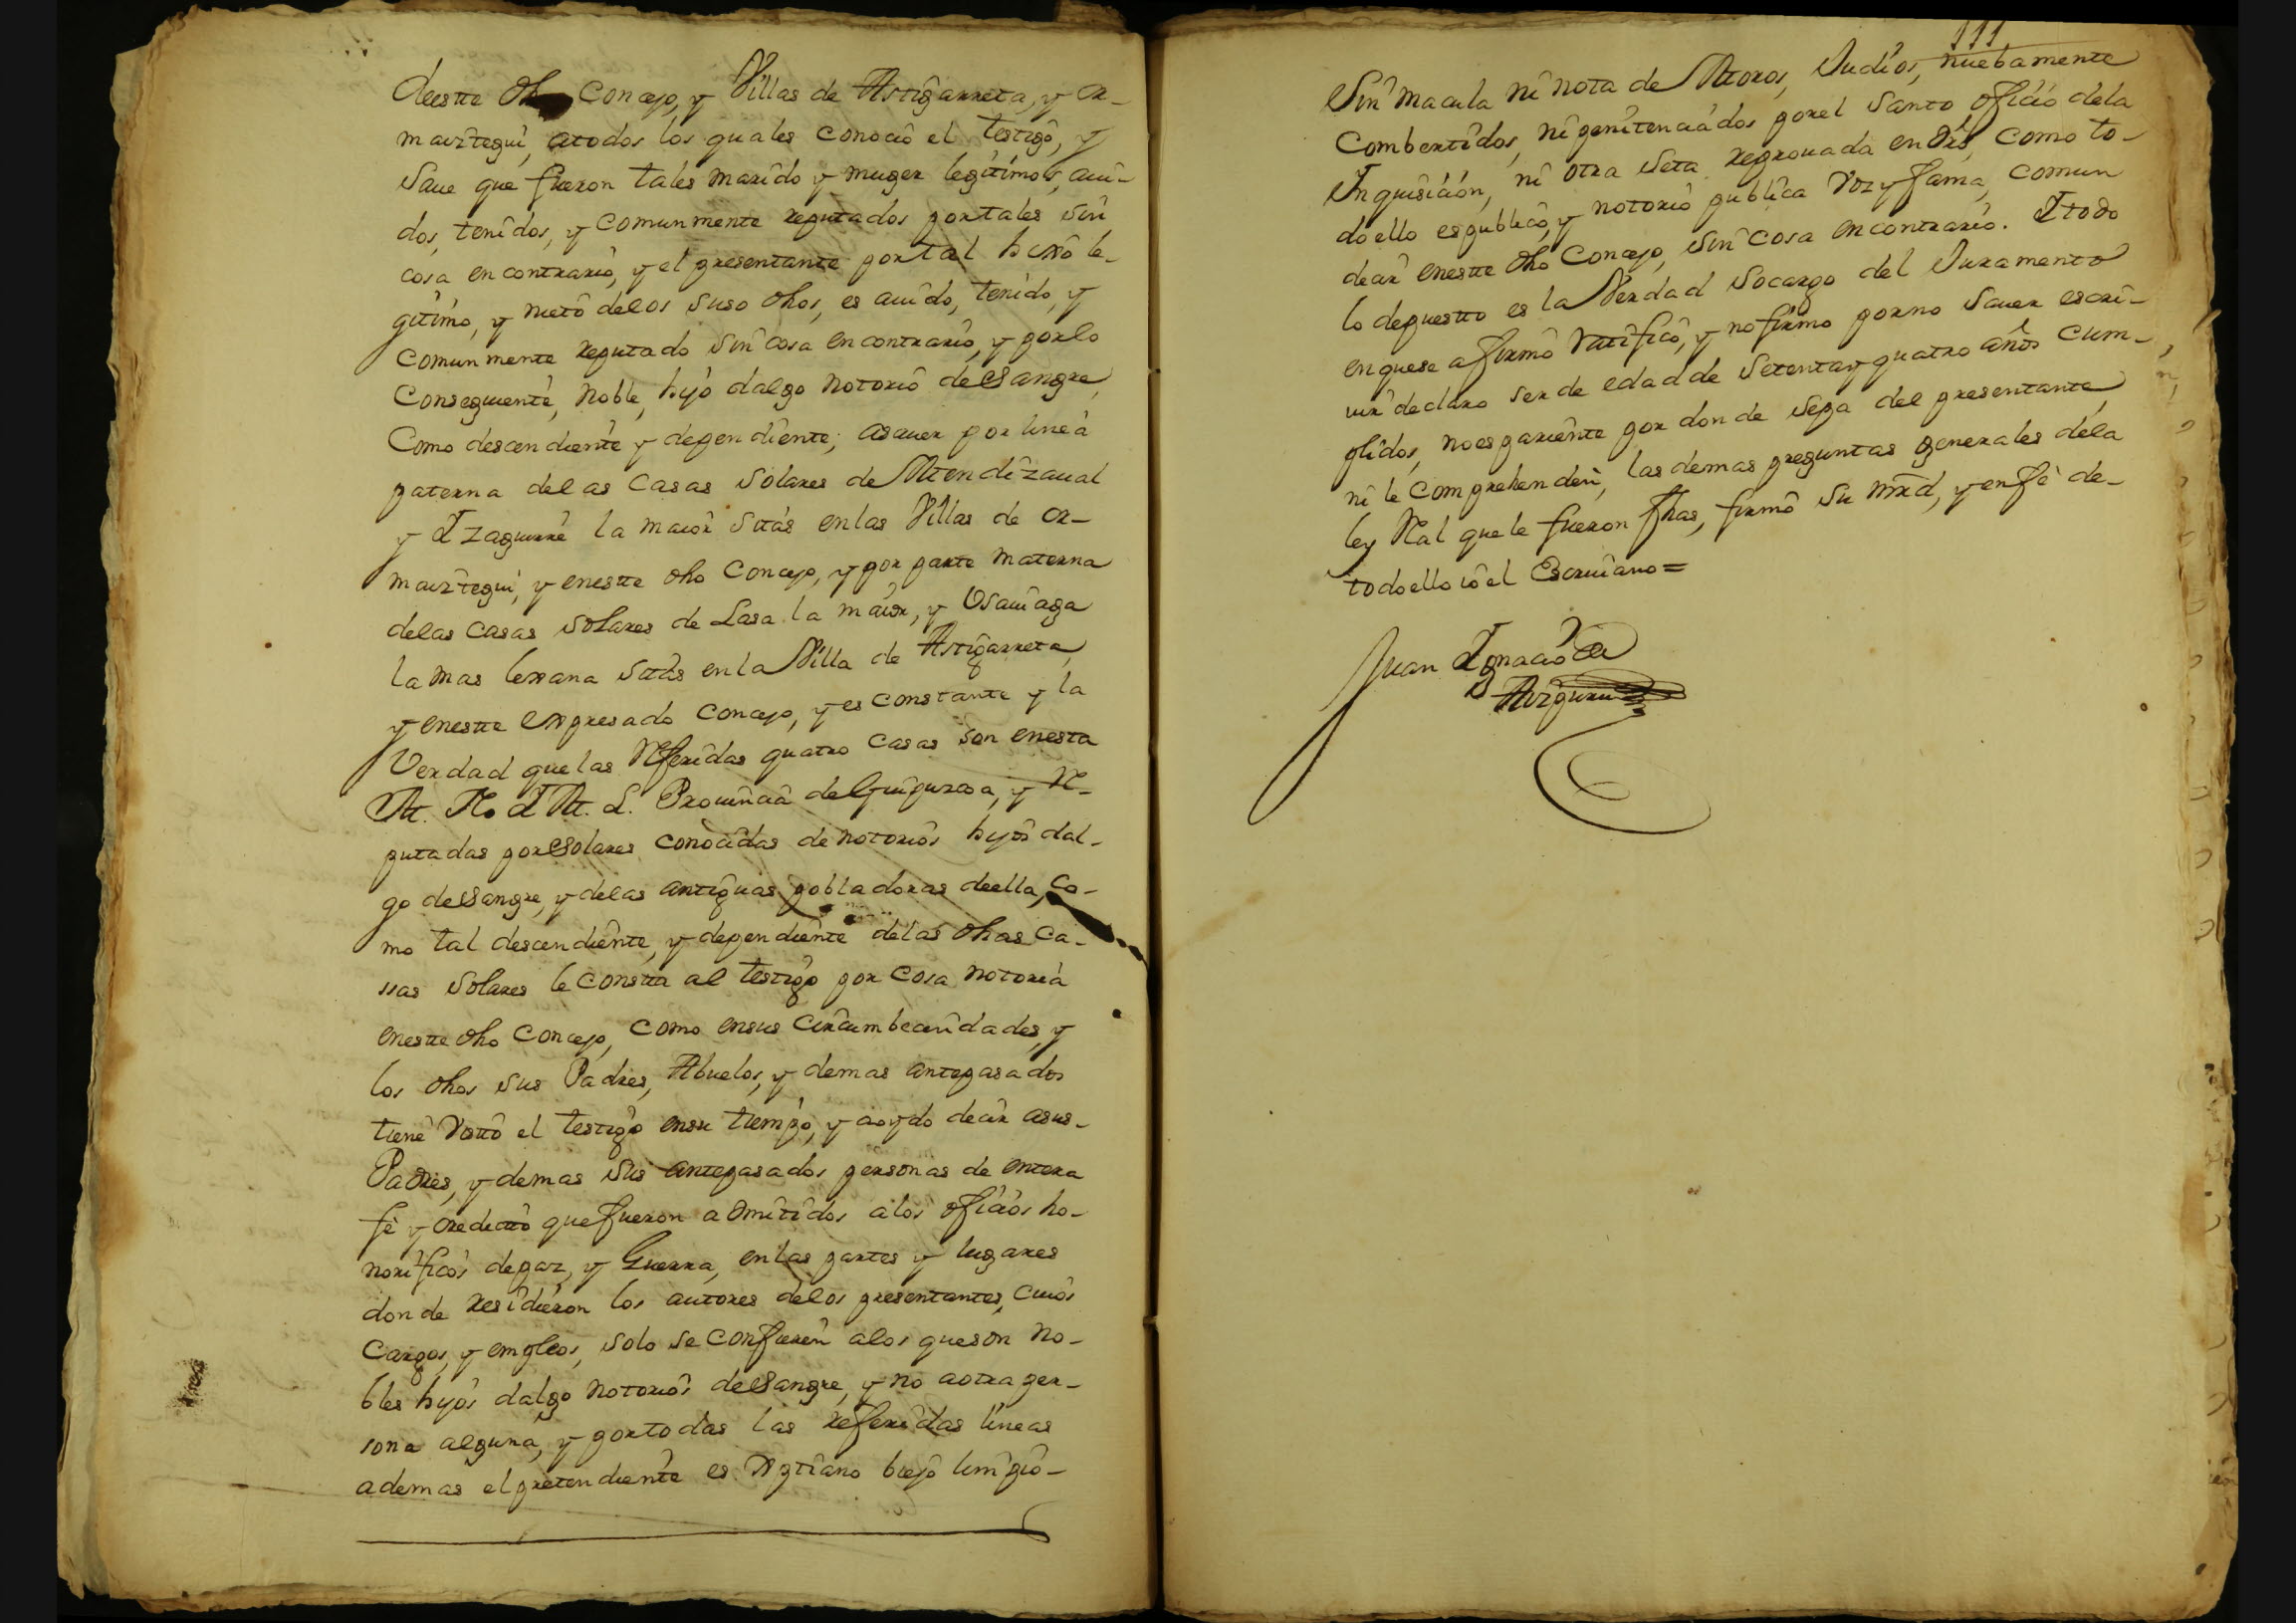 deestte dho Concejo, y Villas de Astigarreta, y or-
maiztegui, atodos los quales conocio el testigo, y
Saue que fueron tales marido y muger legitimos, aui-
dos, tenidos, y comunmente reputados portales sin
cosa en contrario, y el presentante por tal hixo le-
gitimo, y nieto delos suso dhos, es auido, tenido, y
comunmente reputado sin cosa en contrario, y porlo
Conseguiente, Noble, hijo dalgo notorio desangre,
Como descendiente y dependiente; asauer por linea
paterna delas Casas Solares de Mendizaual
y Izaguirre la maior sittas enlas Villas de or-
maiztegui, y enestte dho Concejo, y por parte materna
delas Casas Solares de Lasa la maior, y Usauiaga
la mas lexana sittas en la Villa de Astigarreta,
y enestte expresado Concejo, y es constante y la
Verdad que las Referidas quatro casas son enesta
M. N. I M. L. Prouincia deGuipuzcoa, y Re-
putadas porsolares conocidas de notorios hijos dal-
go desangre, y delas antiguas pobladoras deella, Co-
mo tal descendiente, y dependiente delas dhas Ca-
sas Solares le constta al testigo por cosa notoria
enestte dho Concejo, como ensus circumbecindades, y
los dhos sus Padres, Abuelos, y demas antepasados
tiene Vistto el testigo ensu tiempo, y aoydo decir asus-
Padres, y demas sus antepasados personas de entera
fè y creditto que fueron admitidos alos oficios ho-
norificos depaz, y Guerra, en las partes y lugares
donde residieron los autores delos presentantes, cuios
Cargos, y empleos, solo se confieren alos queson no-
bles hijos dalgo notorios desangre, y no aotra per-
sona alguna, y portodas las referidas lineas
ademas el pretendiente es Xptiano biejo limpio-
111
Sin macula ni nota de Moros, Judios, nuebamente
Combertidos, ni penitenciados porel Santo oficio dela
Inquisición, ni otra Seta reprouada en dro, como to-
doello espublico, y notorio publica voz y fama, comun
decir enestte dho Concejo, sin cosa encontrario. I todo
lo depuestto es la Verdad socargo del Juramento
enquese afirmô ratificô, y nofirmo porno sauer escri-
uir declaro ser de edad de Setentay quatro años cum-
plidos, noespariente por donde sepa del presentante,
ni le comprehenden, las demas preguntas generales dela
ley Real que le fueron fhas, firmô su mrd, y enfè de-
todoello io el Escriuano =
Juan Ignacio de
Aizpuru